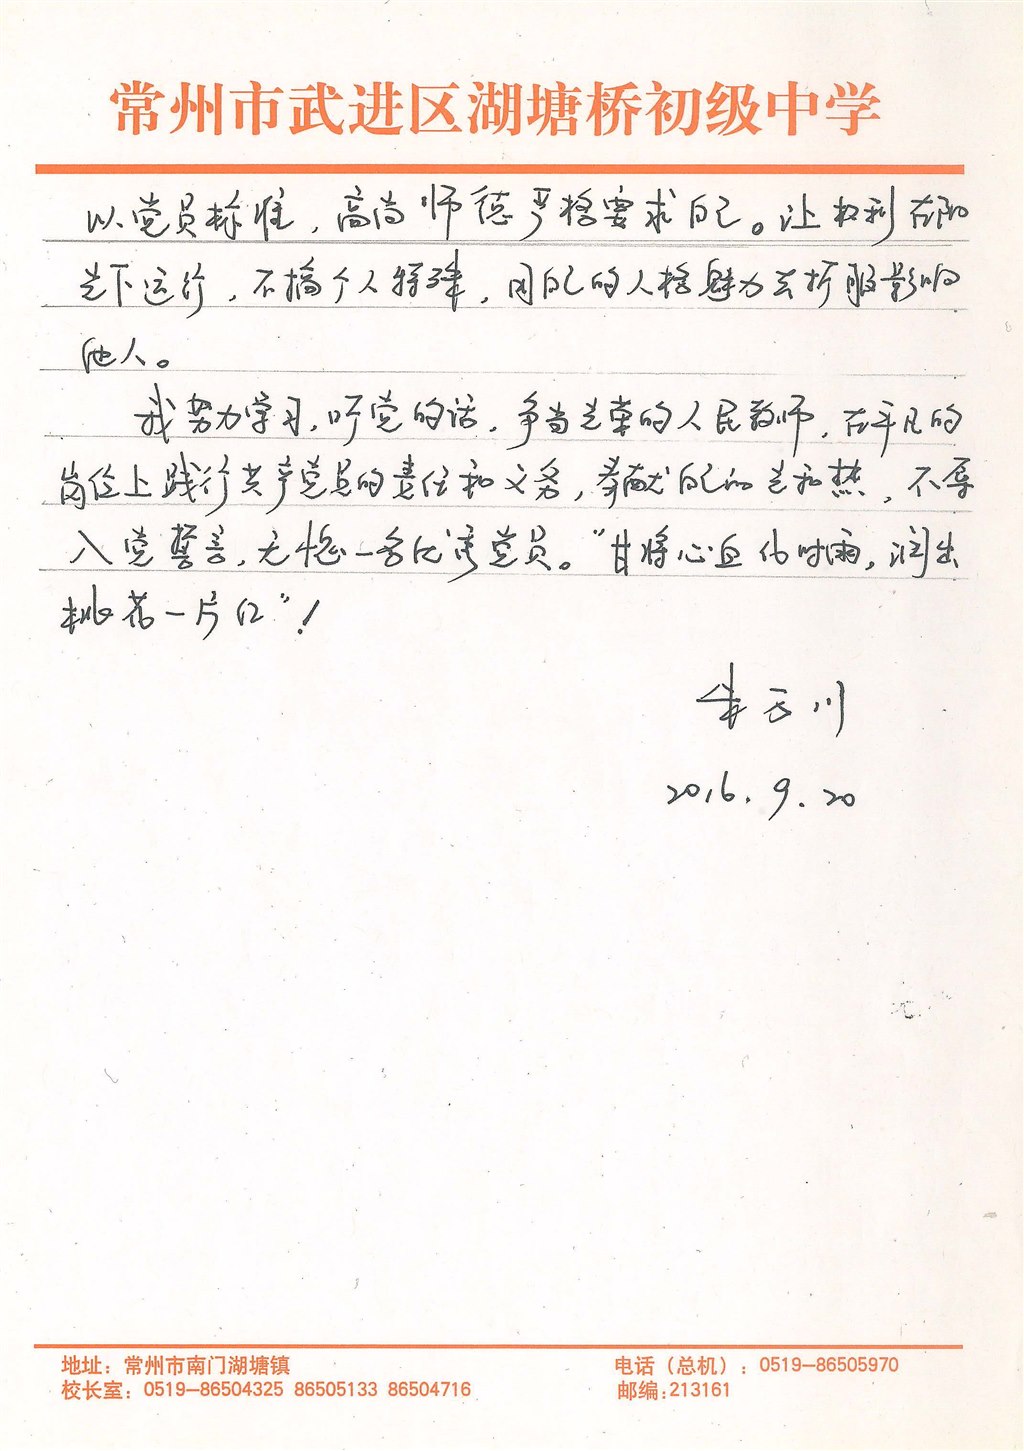 常州市武进区湖塘桥初级中学
以党员标准，高尚师德严格要求自己。让权利在阳
光下运行，不搞个人特殊，用自己的人格魅力去折服影响
他人。
我努力学习，听党的话，争当光荣的人民教师，在平凡的
岗位上践行共产党员的责任和义务，奉献自己的光和热，不辱
入党誓言，无愧一名优秀党员。“甘将心血化时雨，润出
桃花一片红”！
朱云川
2016.9.20
地址：常州市南门湖塘镇
电话（总机）：0519—86505970
校长室：0519—86504325 86505133 86504716
邮编:213161